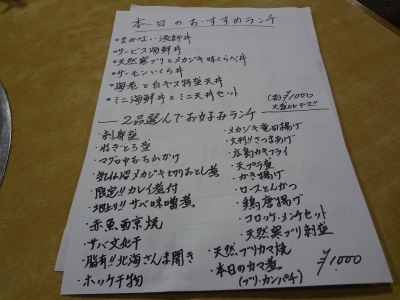 本日のおすすめランチ
○まかない漁師丼
○サービス海鮮丼
○天然寒ブリとメカジキ味くらべ丼
○サーモンいくら丼
○海老と白キス特製天丼
○ミニ海鮮丼とミニ天丼セット
(各)¥1000
大盛りサービス!!
―2品選んでお好みランチ
・刺身盛
・ねぎとろ盛
・マグロ中おち山かけ
・気仙沼メカジキ切りおとし煮
・限定!!カレイ煮付
・地上り!!サバ味噌煮
・赤魚西京焼
・サバ文化干
・脂有!!北海さんま開き
・ホッケ干物
・メカジキ竜田揚げ
・大判!!さつまあげ
・広島カキフライ
・天ぷら盛
・かき揚げ
・ロースとんかつ
・鶏唐揚げ
・コロッケ・メンチセット
・天然寒ブリ刺盛
・天然ブリカマ焼
・本日のカマ煮
(ブリ・カンパチ)
¥1.000